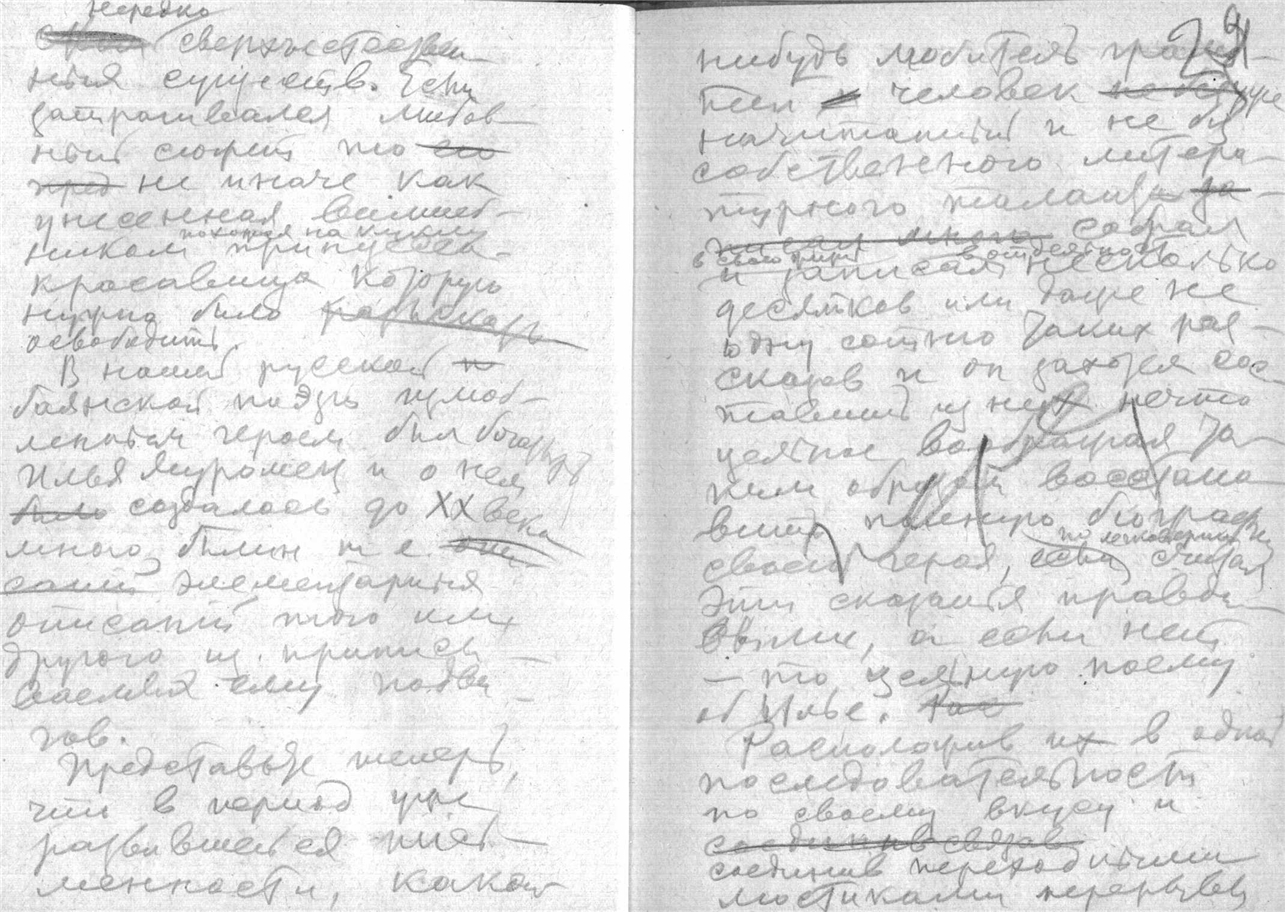 нередко
сверхъестествен
ных существ. Если
затрагивался любов
ный сюжет то его
пред не иначе как
унесенная волшеб-
ником принцесса-
похожая на куклу
красавица которую
нужно было
освободить.
В нашей русской п
баянской поэзии излюб-
ленным героем был богатырь
Илья Муромец и о нем
было создалось до XX века
много былин т е опи
саний элементарных
описаний того или
другого из приписы-
ваемых ему подви-
гов.
Представьте теперь,
что в период уже
развившейся пись-
менности, какой
нибудь любитель
человек не
начитанный и не без
собственного литера-
турного таланта
собрал
и записал несколько
десятков или даже не
одну сотню таких рас-
сказов и он захотел сос
тавить из них нечто
целое воображая та-
ким образом восстано
вить полную биографию
своего героя, если считал
эти сказания правдо-
выми, а если нет
– то цельную поэму
об Илье.
Расположив их в одной
последовательности
по своему вкусу и
соединив связав
соединив переходными
мостиками перерывы